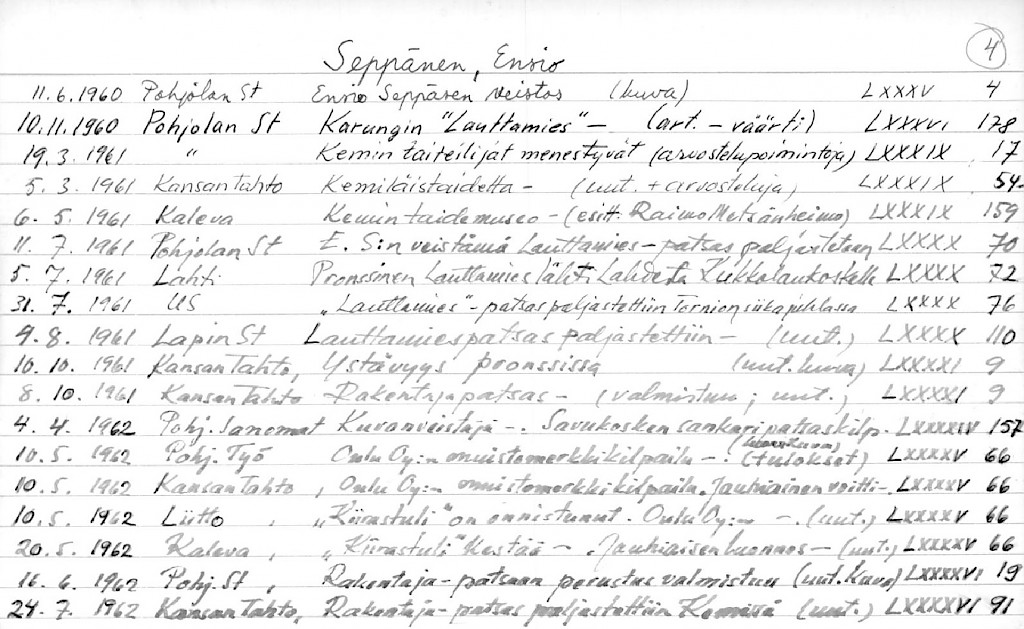 4
Seppänen, Ensio
11.6.1960 Pohjolan St Ensio Seppäsen veistos (kuva) LXXXV 4
10.11.1960 Pohjolan St Karungin "Lauttamies" – (art. – väärti) LXXXVI 178
19.3.1961 " Kemin taiteilijat menestyvät (arvostelupoimintoja) LXXXIX 17
5.3.1961 Kansan Tahto Kemiläistaidetta – (uut. + arvosteluja) LXXXIX 54
6.5.1961 Kaleva Kemin taidemuseo – (esitt. Raimo Metsänheimo) LXXXIX 159
11.7.1961 Pohjolan St E. S:n veistämä Lauttamies – patsas paljastetaan LXXXX 70
5.7.1961 Lahti Pronssinen Lauttamies lähti Lahdesta Kukkolankoskelle LXXXX 72
31.7.1961 US "Lauttamies" - patsas paljastettiin Tornion siikajuhlassa LXXXX 76
9.8.1961 Lapin St Lauttamiespatsas paljastettiin – (uut.) LXXXX 110
10.10.1961 Kansan Tahto, Ystävyys pronssissa (uut. kuva) LXXXXI 9
8.10.1961 Kansan Tahto Rakentajapatsas – (valmistuu; uut.) LXXXXI 9
4.4.1962 Pohj. Sanomat Kuvanveistäjä –. Savukosken sankaripatsaskilp. LXXXXIV 157
10.5.1962 Pohj. Työ Oulu Oy:n muistomerkkikilpailu –. (tulokset) LXXXXV 66
10.5.1962 Kansan Tahto, Oulu Oy:n muistomerkkikilpailu. Jauhiainen voitti –. LXXXXV 66
10.5.1962 Liitto, "Kiirastuli" on onnistunut. Oulu Oy:n –. (uut.) LXXXXV 66
20.5.1962 Kaleva, "Kiirastuli" kestää –. Jauhiaisen luonnos – (uut.) LXXXXV 66
16.6.1962 Pohj. St, Rakentaja – patsaan perustus valmistuu (uut. kuva) LXXXXVI 19
24.7.1962 Kansan Tahto, Rakentaja – patsas paljastettiin Kemissä (uut.) LXXXXVI 91